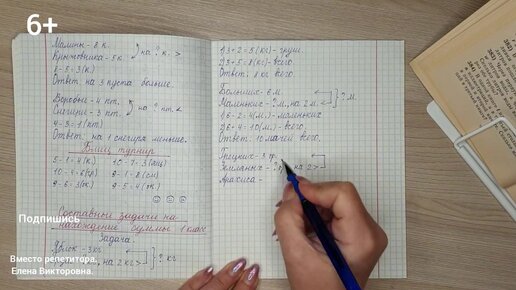 6+
Малины - 8 к.
Крыжовника - 5 к. на ? к. >
8 - 5 = 3 (к.)
Ответ: на 3 куста больше.
Воробьи - 4 пт.
Снегири - 3 пт. на ? пт. <
4 - 3 = 1 (пт)
Ответ: на 1 снегиря меньше.
Блиц турнир
5 - 1 = 4 (к)
10 - 7 = 3
9 - 6 = 3
9 - 5 = 4 (ок)
Составные задачи на
нахождение суммы 1 класс
Задача.
Яблок - 3 кг
на 2 кг > ? кг
Подпишись
Вместо репетитора.
Елена Викторовна.
1) 3 + 2 = 5 (кг) - груш.
2) 3 + 5 = 8 (кг) - всего
Ответ: 8 кг всего
Больших - 6 м.
Маленьких - ? м, на 2 м. < ? м.
1) 6 - 2 = 4 (м.) - маленьких
2) 6 + 4 = 10 (м) - всего
Ответ: 10 мячей всего.
Грецких - 3
Земляных - ? на 2 >
Арахиса -